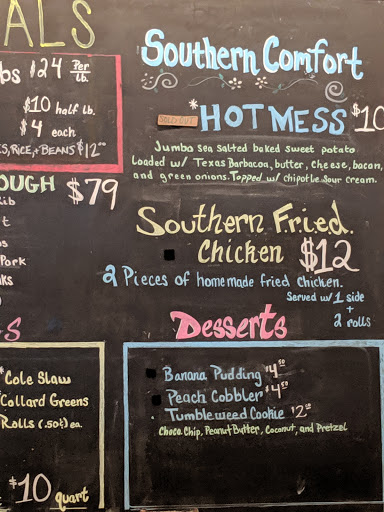 ALS
bs $24 Per lb.
$10 half lb.
$4 each
S, RICE, + BEANS $12.00
OUGH $79
ib
t
os
Pork
nks
S
*Cole Slaw
Collard Greens
Rolls (.50¢) ea.
$10 quart
Southern Comfort
SOLD OUT *HOT MESS $10
Jumbo sea salted baked sweet potato
loaded w/ Texas Barbacoa, butter, cheese, bacon,
and green onions. Topped w/ chipotle sour cream.
Southern Fried.
Chicken $12
2 Pieces of homemade fried chicken.
Served w/ 1 side
+
2 rolls
Desserts
Banana Pudding $4.50
Peach Cobbler $4.50
Tumbleweed Cookie $2.50
Choco Chip, Peanut Butter, Coconut, and Pretzel